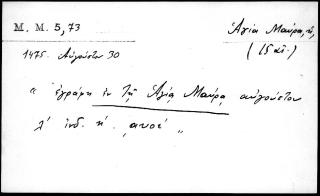 M. M. 5, 73
Ἁγία Μαύρα, ἡ,
(15 αἰ.)
1475. Αὐγούστου 30
“ ἐγράφη ἐν τῇ Ἁγίᾳ Μαύρᾳ αὐγούστου
λ' ἰνδ. η'. ͵αυοε' „